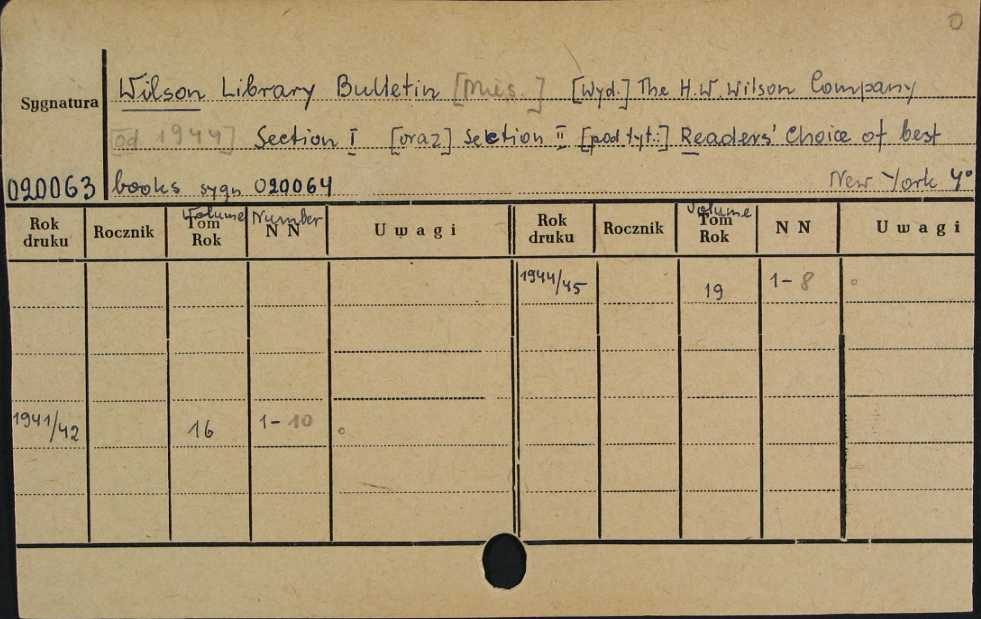 0
Wilson Library Bulletin [mies.] [Wyd.] The H.W. Wilson Company
Sygnatura
[od 1944] Section I [oraz] Section II [pod tyt.:] Readers' Choice of best
020063 books sygn 020064 New York 4°
Rok druku Rocznik Volume Tom Rok Number N N Uwagi Rok druku Rocznik Volume Tom Rok N N Uwagi
1944/45 19 1-8
1941/42 16 1-10